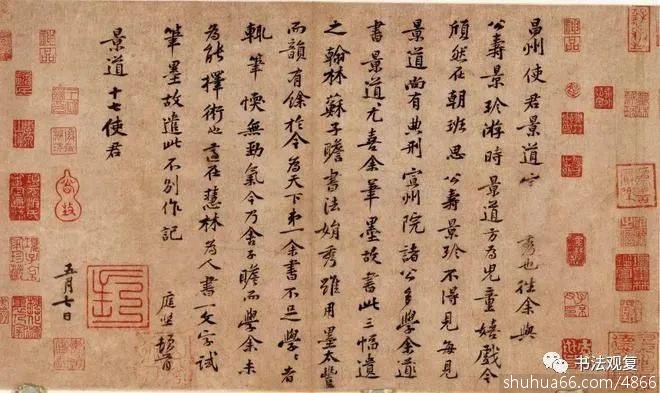 昌州使君景道宗 秀也往余與
公壽景珍游時景道方為兒童嬉戲今
頎然在朝班思 公壽景珍不得見每見
景道尚有典刑宣州院諸公多學余
書景道尤喜余筆墨故書此三幅遺
之翰林蘇子瞻書法娟秀雖用墨太豐
而韻有餘於今為天下第一余書不足學〻者
輒筆愞無勁氣今乃舍子瞻而學余未
為能擇術也適在慧林為人書一文字試
筆墨故遣此不別作記
庭堅頓首
景道十七使君
五月七日
书法观复
shuhua66.com/4866